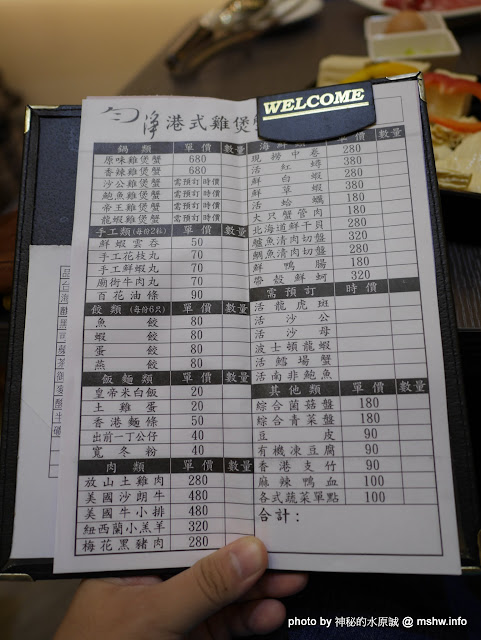 勻淨港式雞煲
WELCOME
鍋類 單價 數量
原味雞煲蟹 680
香辣雞煲蟹 680
沙公雞煲蟹 需預訂 時價
鮑魚雞煲蟹 需預訂 時價
帝王雞煲蟹 需預訂 時價
龍蝦雞煲蟹 需預訂 時價
手工類(每份2粒) 單價 數量
鮮蝦雲吞 50
手工花枝丸 70
手工鮮蝦丸 70
廟街牛肉丸 70
百花油條 90
餃類(每份6只) 單價 數量
魚餃 80
蝦餃 80
蛋餃 80
燕餃 80
飯麵類 單價 數量
皇帝米白飯 20
土雞蛋 20
香港麵條 50
出前一丁公仔 40
寬冬粉 40
肉類 單價 數量
放山土雞肉 280
美國沙朗牛 480
美國牛小排 480
紐西蘭小羔羊 320
梅花黑豬肉 280
海鮮類 數量
現撈中卷 280
活紅蟳 380
鮮白蝦 280
鮮草蝦 380
活蛤蠣 180
大只蟹管肉 180
北海道鮮干貝 280
鱸魚清肉切盤 320
鯛魚清肉切盤 280
鮮鴨腸 180
帶殼鮮蚵 320
需預訂 時價 數量
活龍虎斑
活沙公
活沙母
波士頓龍蝦
活鱈場蟹
活南非鮑魚
其他類 單價 數量
綜合菌菇盤 180
綜合青菜盤 180
豆皮 90
有機凍豆腐 90
香港支竹 90
麻辣鴨血 100
各式蔬菜單點 100
合計:
photo by 神秘的水原誠 @ mshw.info